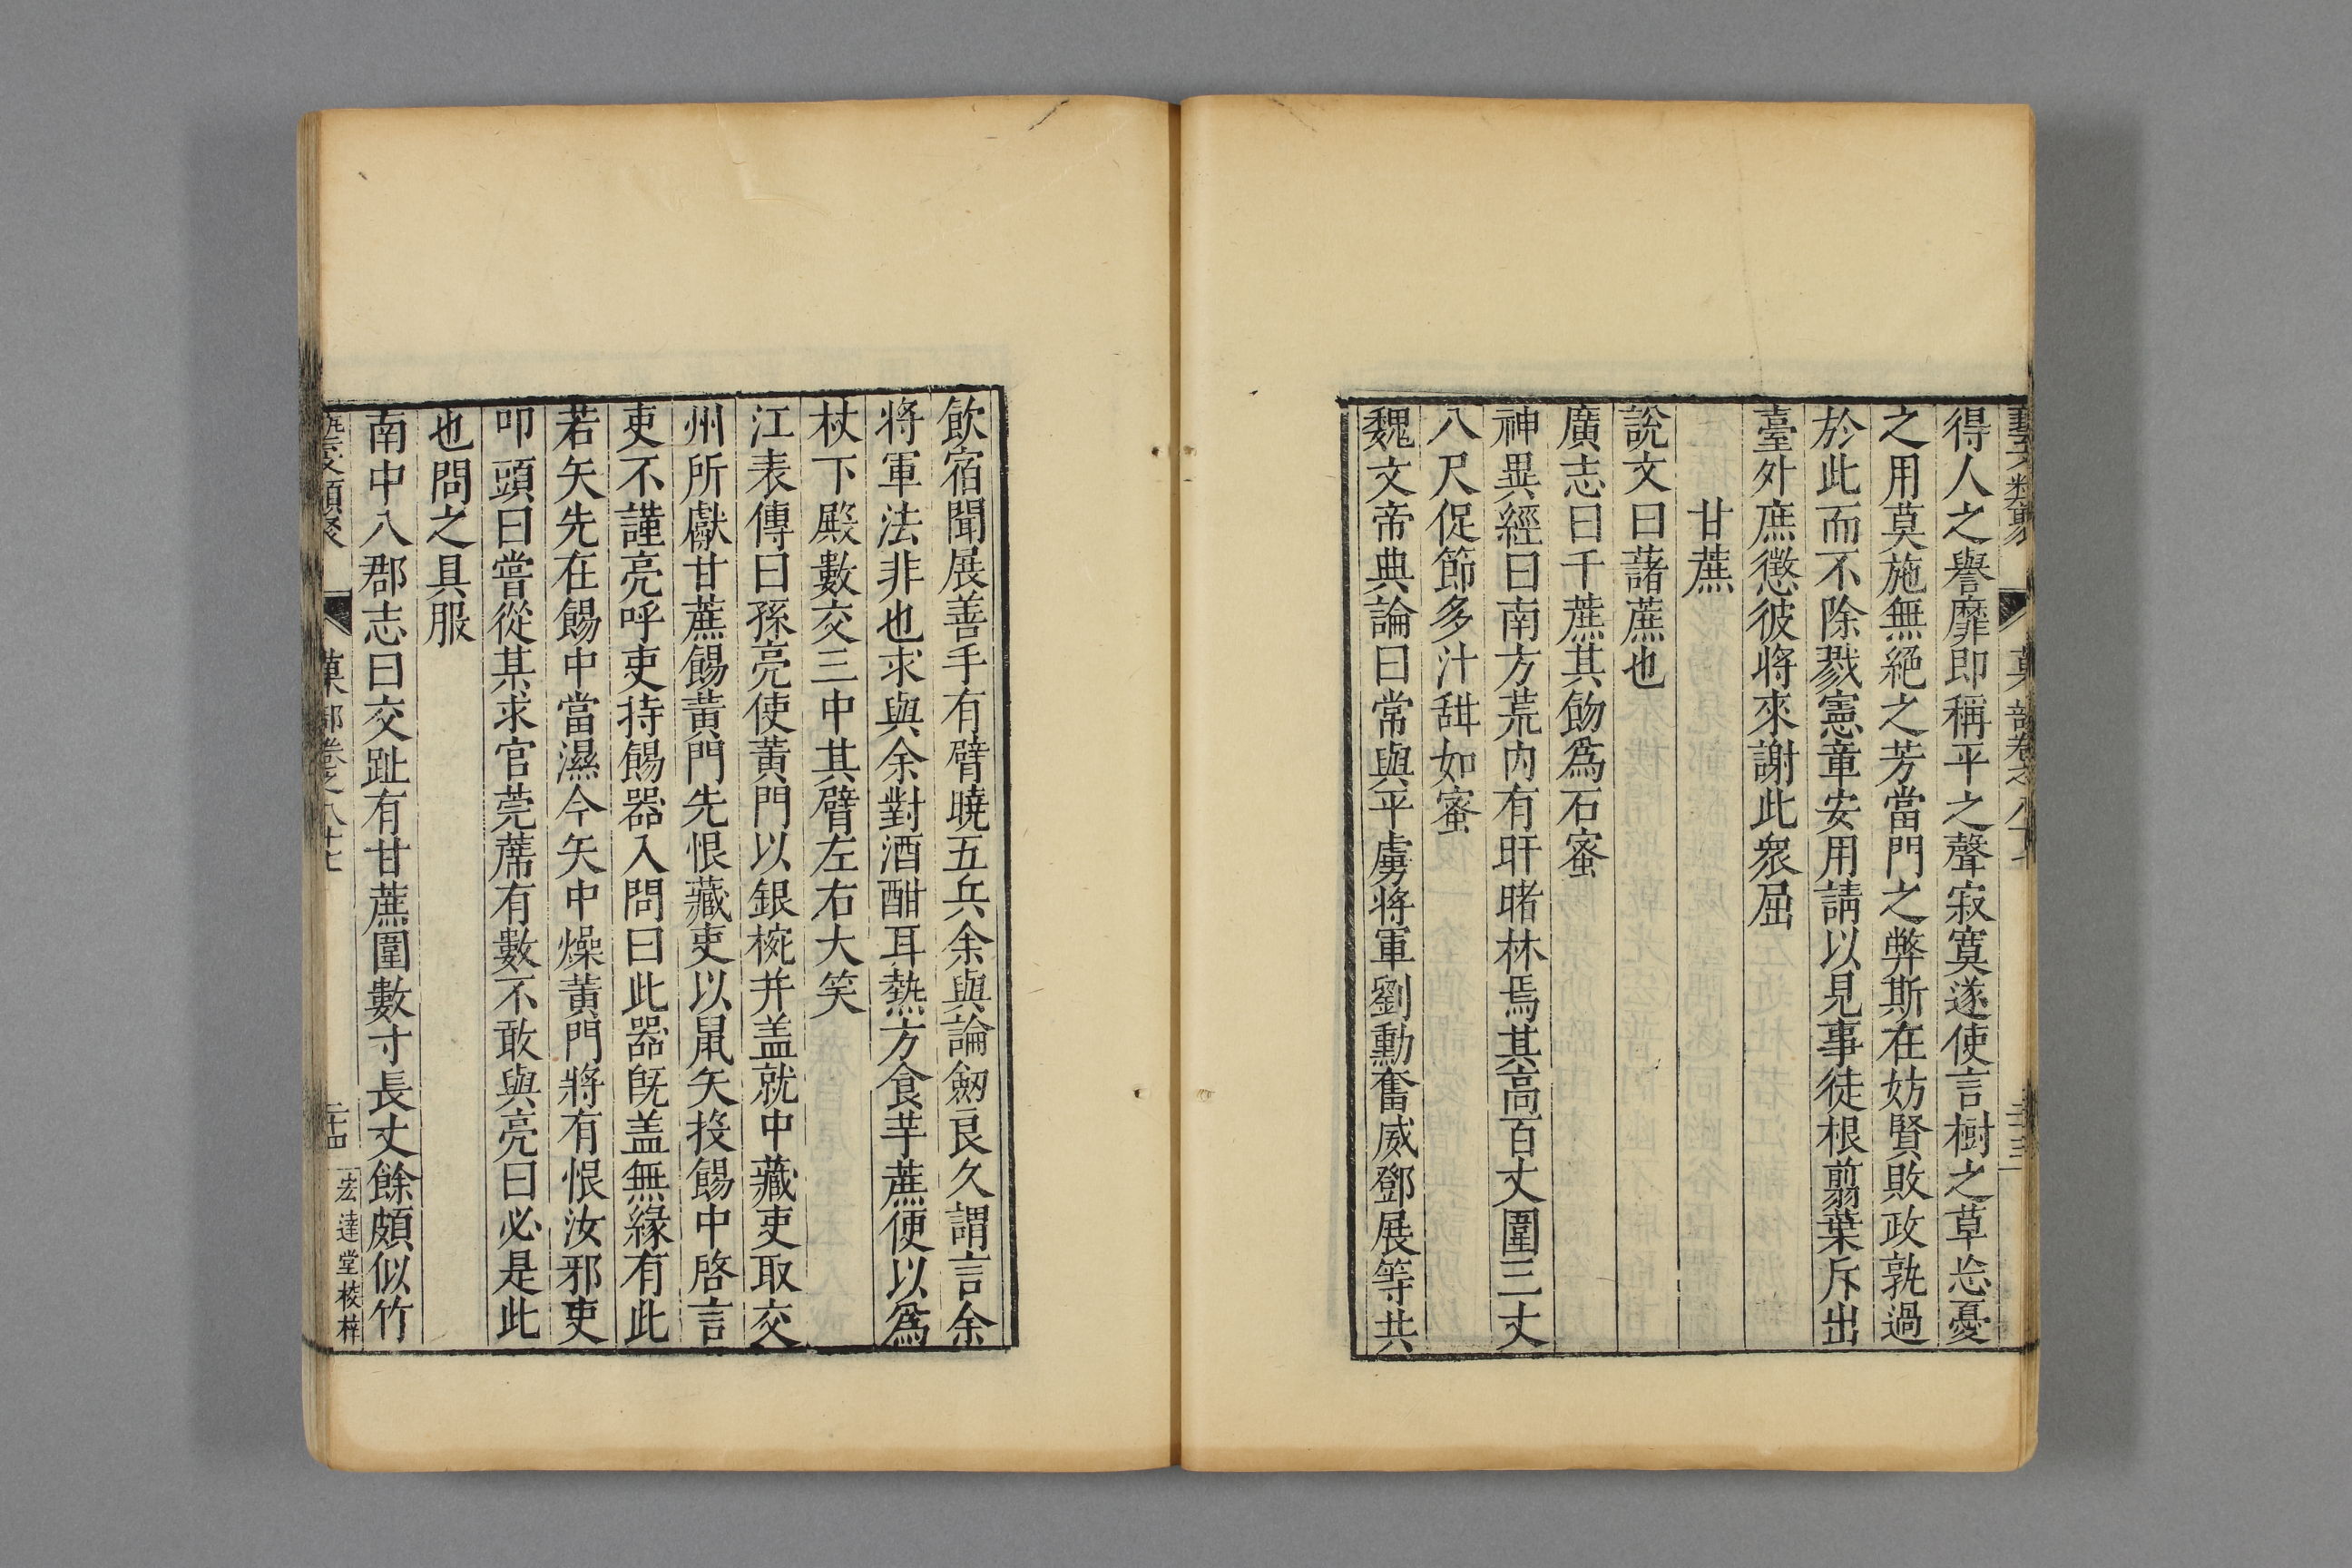 得人之譽靡即稱平之聲寂寞遂使言樹之草忘憂
之用莫施無絕之芳當門之弊斯在妨賢敗政孰過
於此而不除戮憲章安用請以見事徒根翦葉斥出
臺外庶懲彼將來謝此衆屈
甘蔗
說文曰藷蔗也
廣志曰千蔗其餳為石蜜
神異經曰南方荒內有盱睹林焉其高百丈圍三丈
八尺促節多汁甜如蜜
魏文帝典論曰常與平虜將軍劉勳奮威鄧展等共
飲宿聞展善手有臂曉五兵余與論劒良久謂言余
將軍法非也求與余對酒酣耳熱方食芋蔗便以為
杖下殿數交三中其臂左右大笑
江表傳曰孫亮使黃門以銀椀并盖就中藏吏取交
州所獻甘蔗餳黃門先恨藏吏以鼠矢投餳中啓言
吏不謹亮呼吏持餳器入問曰此器既盖無緣有此
若矢先在餳中當濕今矢中燥黃門將有恨汝邪吏
叩頭曰嘗從某求官莞蓆有數不敢與亮曰必是此
也問之具服
南中八郡志曰交趾有甘蔗圍數寸長丈餘頗似竹
藝文類聚
菓部卷之八十七
二十四
宏達堂校梓